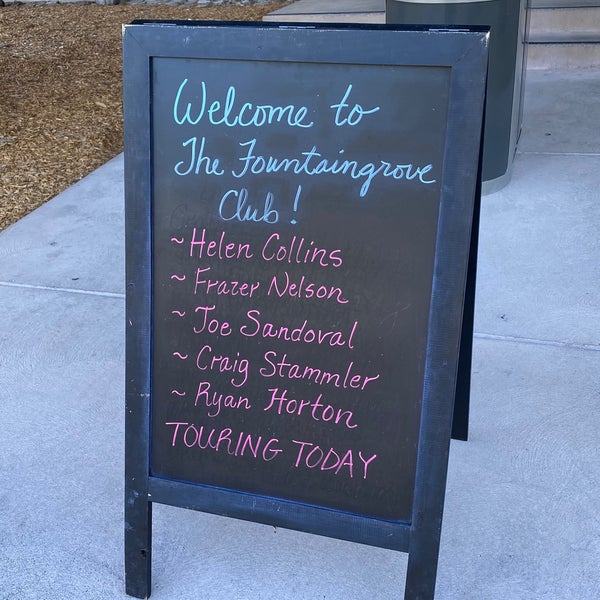 Welcome to
The Fountaingrove
Club!
~ Helen Collins
~ Frazer Nelson
~ Joe Sandoval
~ Craig Stammler
~ Ryan Horton
TOURING TODAY